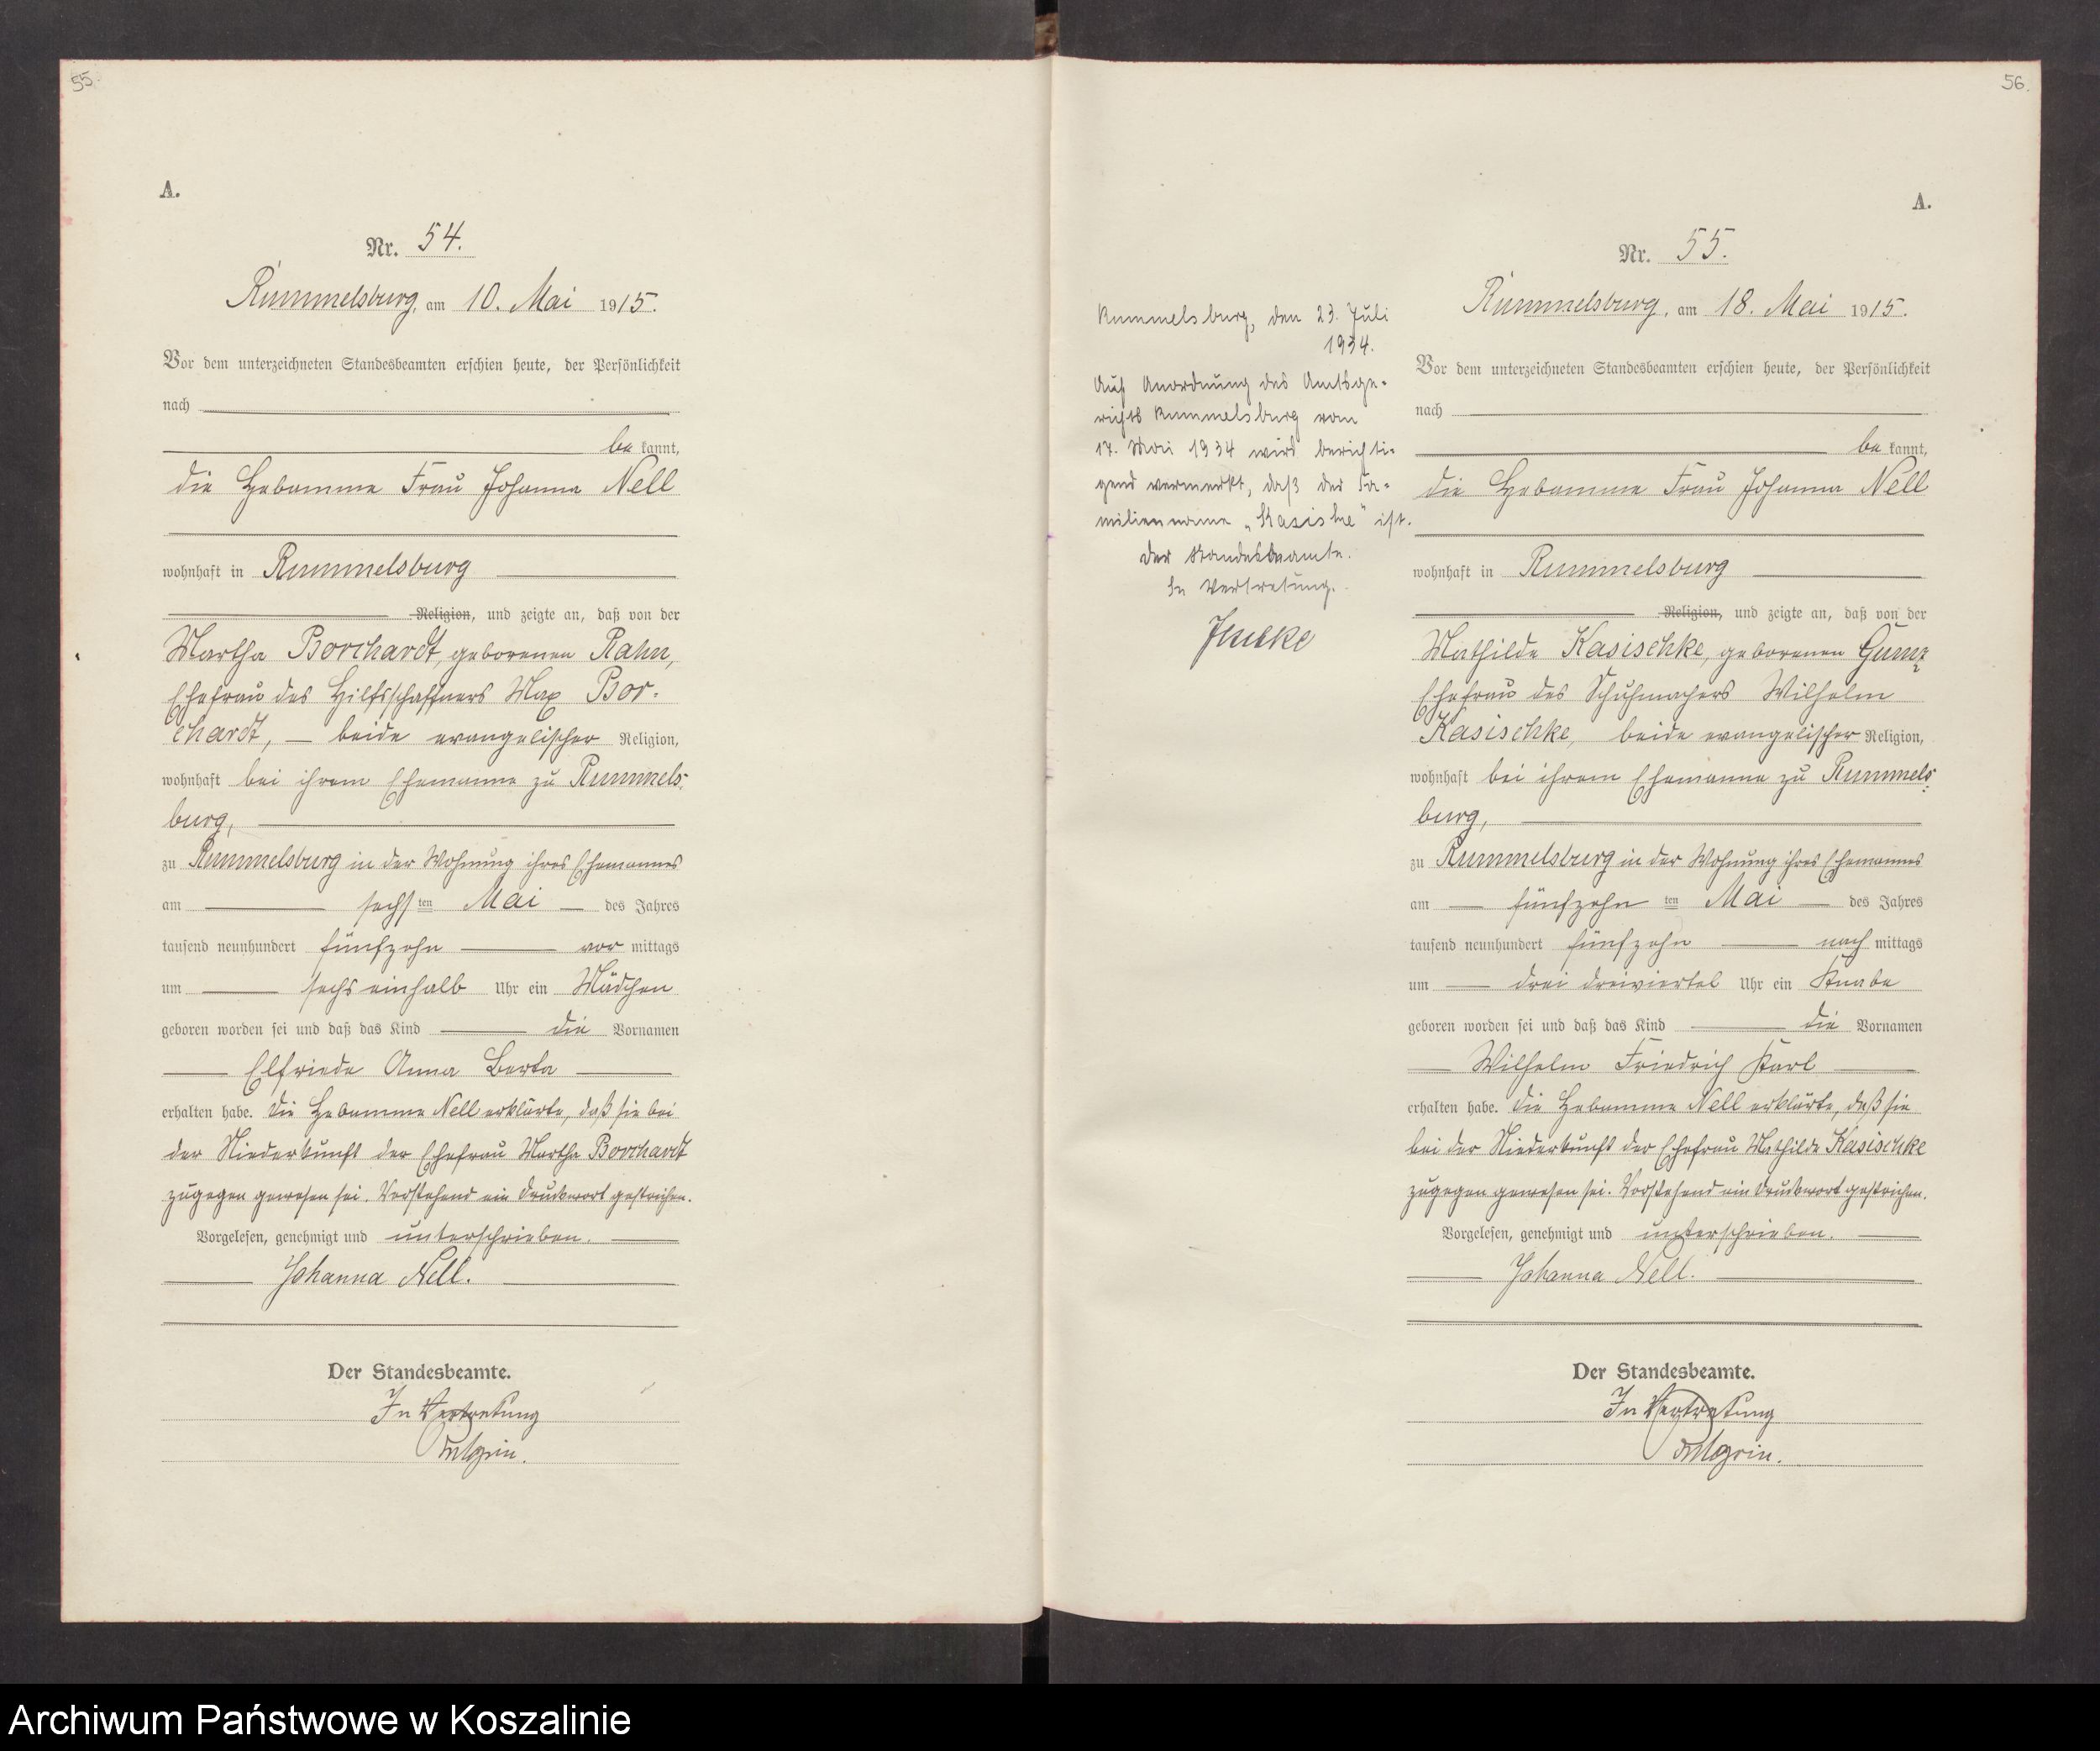 55.
A.
Nr. 54.
Rummelsburg, am 10. Mai 1915.
Vor dem unterzeichneten Standesbeamten erschien heute, der Persönlichkeit
nach
be kannt,
die Hebamme Frau Johanna Nell
wohnhaft in Rummelsburg
Religion, und zeigte an, daß von der
Martha Borchardt, geborenen Rahn,
Ehefrau des Hilfsschaffners Max Bor-
chardt, — beide evangelischer Religion,
wohnhaft bei ihrem Ehemanne zu Rummels-
burg,
zu Rummelsburg in der Wohnung ihres Ehemannes
am sechs ten Mai des Jahres
tausend neunhundert fünfzehn vor mittags
um sechs einhalb Uhr ein Mädchen
geboren worden sei und daß das Kind die Vornamen
Elfriede Anna Berta
erhalten habe. Die Hebamme Nell erklärte, daß sie bei
der Niederkunft der Ehefrau Martha Borchardt
zugegen gewesen sei. Vorstehend ein Druckwort gestrichen.
Vorgelesen, genehmigt und unterschrieben.
Johanna Nell.
Der Standesbeamte.
In Vertretung
56.
A.
Nr. 55.
Rummelsburg, am 18. Mai 1915.
Vor dem unterzeichneten Standesbeamten erschien heute, der Persönlichkeit
nach
be kannt,
die Hebamme Frau Johanna Nell
wohnhaft in Rummelsburg
Religion, und zeigte an, daß von der
Mathilde Kasischke, geborenen Gunz
Ehefrau des Schuhmachers Wilhelm
Kasischke, beide evangelischer Religion,
wohnhaft bei ihrem Ehemanne zu Rummels-
burg,
zu Rummelsburg in der Wohnung ihres Ehemannes
am fünfzehn ten Mai des Jahres
tausend neunhundert fünfzehn nach mittags
um drei dreiviertel Uhr ein Knabe
geboren worden sei und daß das Kind die Vornamen
Wilhelm Friedrich Karl
erhalten habe. Die Hebamme Nell erklärte, daß sie
bei der Niederkunft der Ehefrau Mathilde Kasischke
zugegen gewesen sei. Vorstehend ein Druckwort gestrichen.
Vorgelesen, genehmigt und unterschrieben.
Johanna Nell.
Der Standesbeamte.
In Vertretung
Rummelsburg, den 23. Juli
1934.
Auf Anordnung des Amtsge-
richts Rummelsburg vom
17. Mai 1934 wird berichti-
gend vermerkt, daß der Fa-
milienname "Kasiske" ist.
Der Standesbeamte.
In Vertretung.
Archiwum Państwowe w Koszalinie